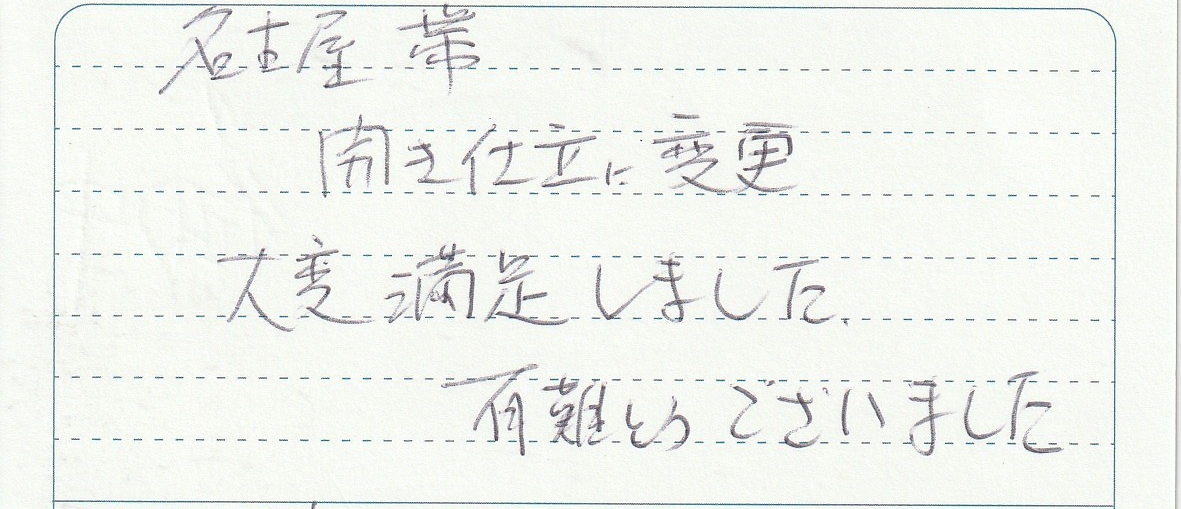 名古屋帯
開き仕立に変更
大変満足しました.
有難とうございました